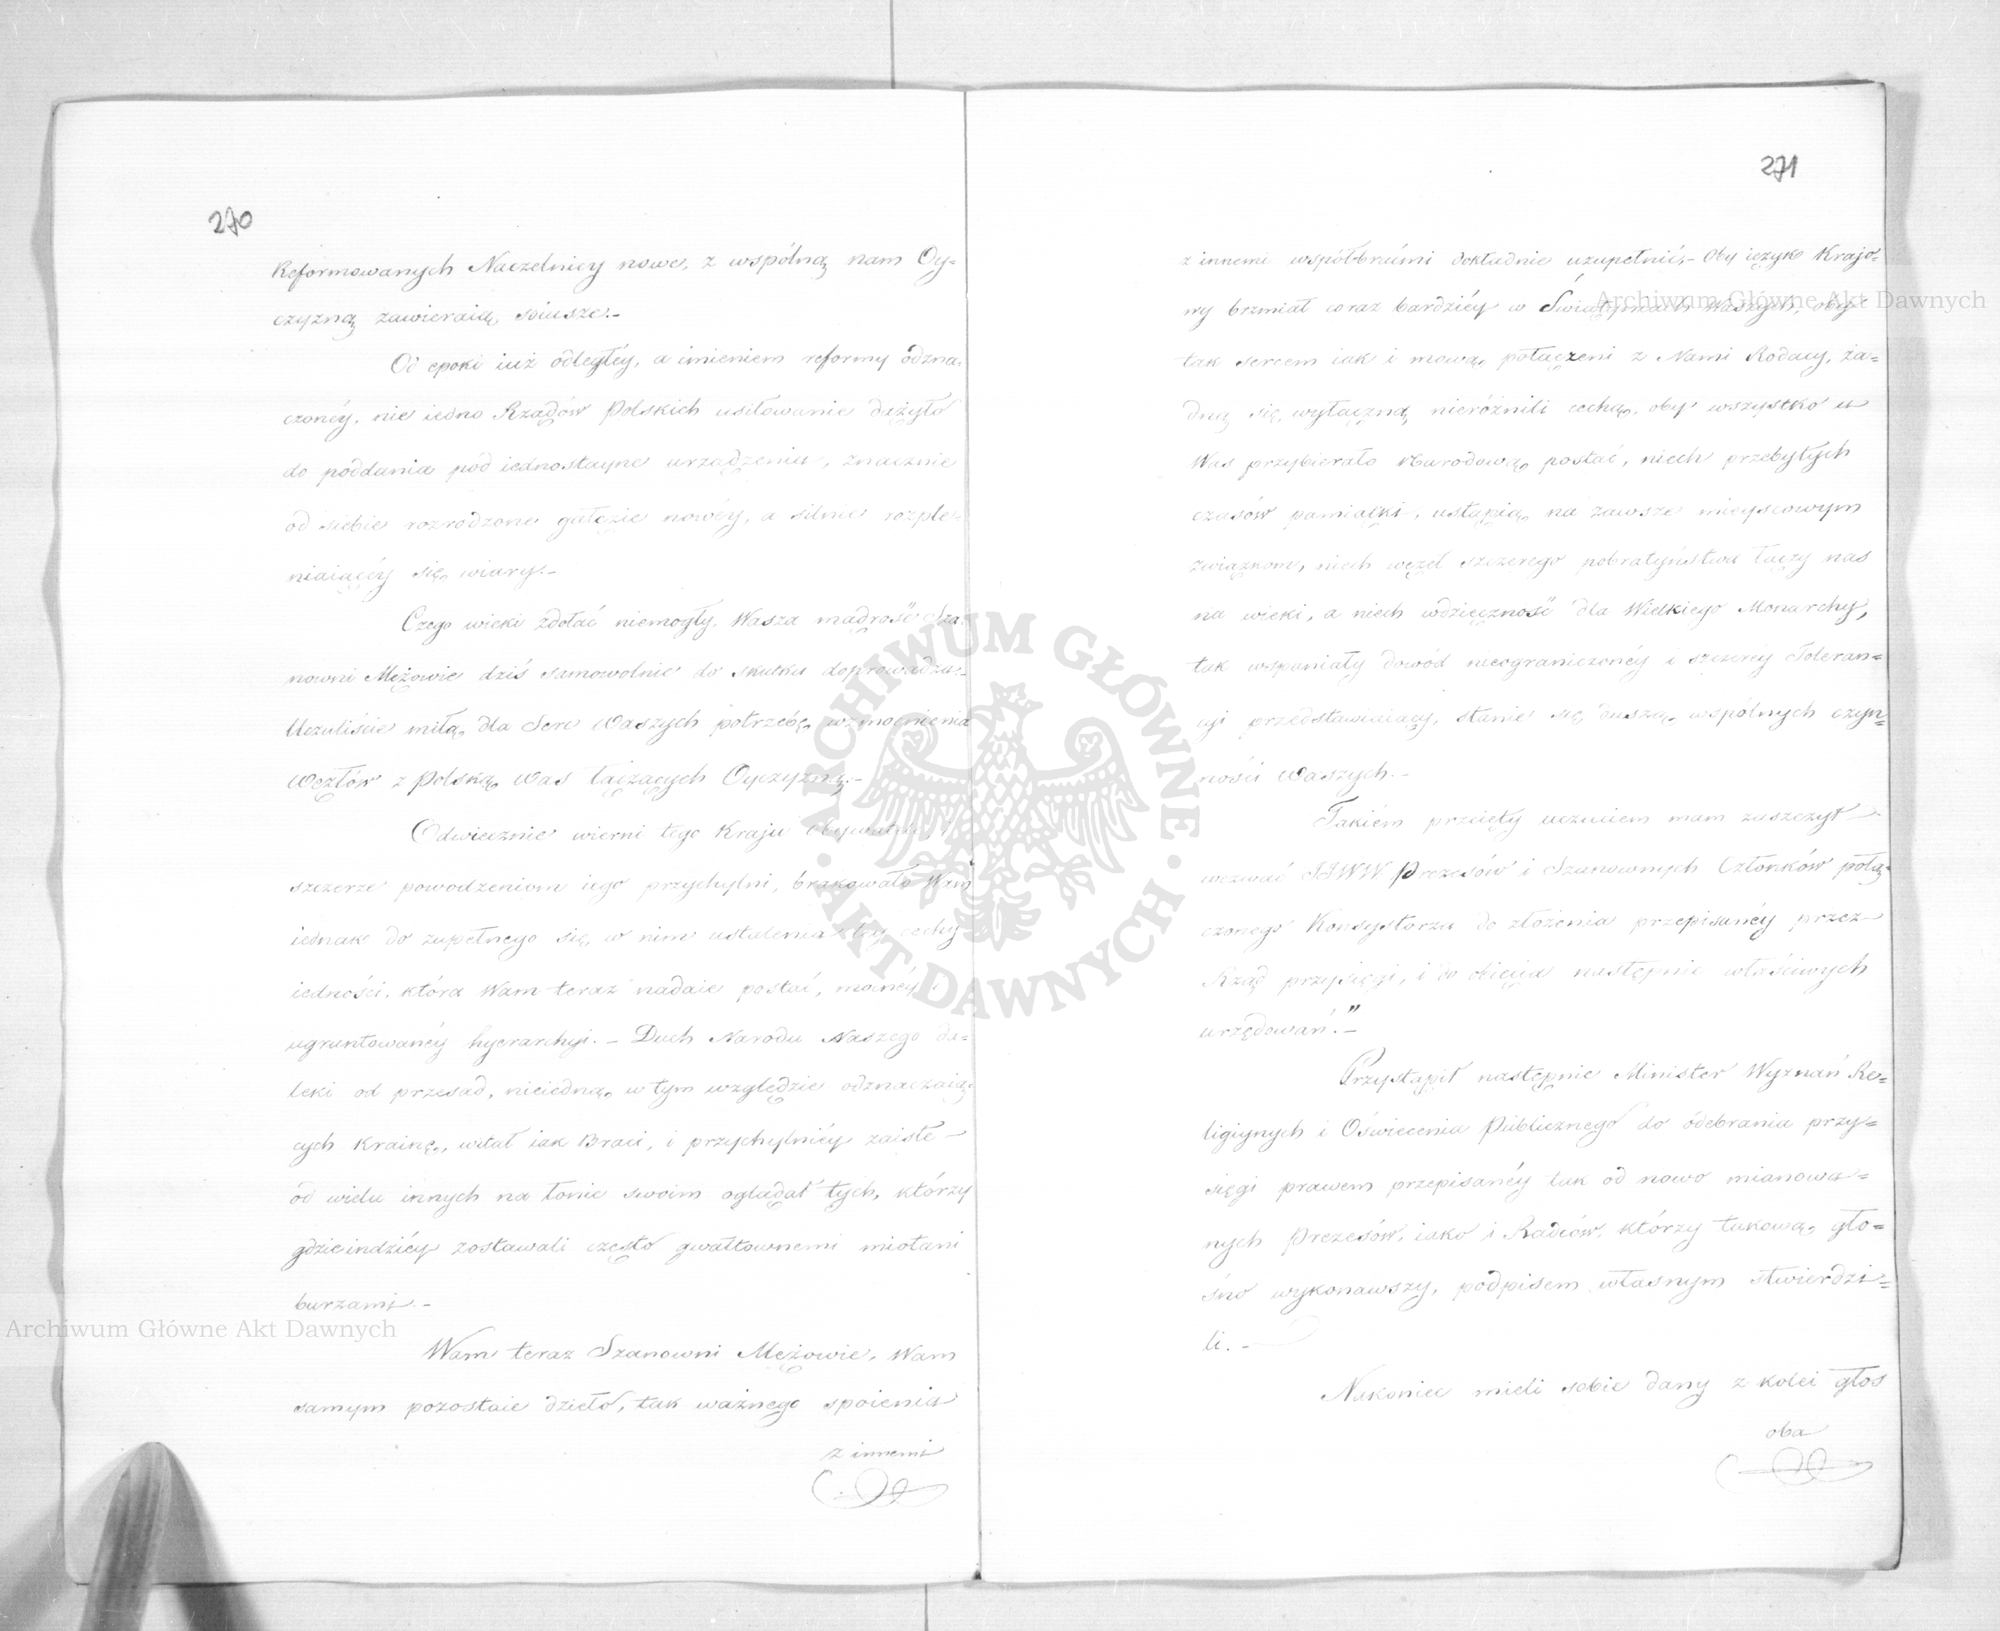 270
Reformowanych Naczelnicy nowe, z wspólną nam Oy=
czyzną zawieraią, soiusze.–
Od epoki iuż odległéy, a imieniem reformy odzna=
czonéy, nie iedno Rządów Polskich usiłowanie dążyło
do poddania pod iednostayne urządzenia, znacznie
od siebie rozrodzone gałęzie nowéy, a silnie rozple=
niaiącéy się wiary.–
Czego wieki zdołać niemogły, Wasza mądrość Sza=
nowni Mężowie dziś samowolnie do skutku doprowadza.–
Uczuliście miłą, dla Serc Waszych potrzebę, wzmocnienia
węzłów z Polską, Was łączących Oyczyzną.–
Odwiecznie wierni tego Kraju Obywatele, i
szczerze powodzeniom iego przychylni, brakowało Wam
iednak do zupełnego się, w nim ustalenia téy cechy
iedności, która Wam teraz nadaie postać, mocnéy i
ugruntowanéy hyerarchyi.– Duch Narodu Naszego da=
leki od przesad, nieiedną, w tym względzie odznaczaią=
cych Krainę, witał iak Braci, i przychylniéy zaiste–
od wielu innych na łonie swoim oglądał tych, którzy
gdzieindziéy zostawali często gwałtownemi miotani
burzami.–
Wam teraz Szanowni Mężowie, Wam
samym pozostaie dzieło, tak ważnego spoienia
z innemi
271
z innemi współbraćmi dokładnie uzupełnić,– Oby ięzyk Krajo=
wy brzmiał coraz bardziéy w Świątyniach Waszych, oby
tak sercem iak i mową, połączeni z Nami Rodacy, ża=
dną się, wyłączną nieróżnili cechą, oby wszystko u
Was przybierało Narodową, postać, niech przebytych
czasów pamiątki, ustąpią, na zawsze mieyscowym
związkom, niech węzeł szczerego pobratyństwa łączy nas
na wieki, a niech wdzięczność dla Wielkiego Monarchy,
tak wspaniały dowód nieograniczonéy i szczerey Toleran=
cyi przedstawiaiący, stanie się, duszą, wspólnych czyn=
ności Waszych.–
Takiém przeięty uczuciem mam zaszczyt
wezwać JJWW Prezesów i Szanownych Członków połą=
czonego Konsystorza do złożenia przepisanéy przez–
Rząd przysięgi, i do obięcia następnie właściwych
urzędowań."–
Przystąpił następnie Minister Wyznań Re=
ligiynych i Oświecenia Publicznego do odebrania przy=
sięgi prawem przepisanéy tak od nowo mianowa=
nych Prezesów, iako i Radców, którzy takową, gło=
śno wykonawszy, podpisem własnym stwierdzi=
li.–
Nakoniec mieli sobie dany z kolei głos
oba
ARCHIWUM GŁÓWNE AKT DAWNYCH
Archiwum Główne Akt Dawnych
Archiwum Główne Akt Dawnych